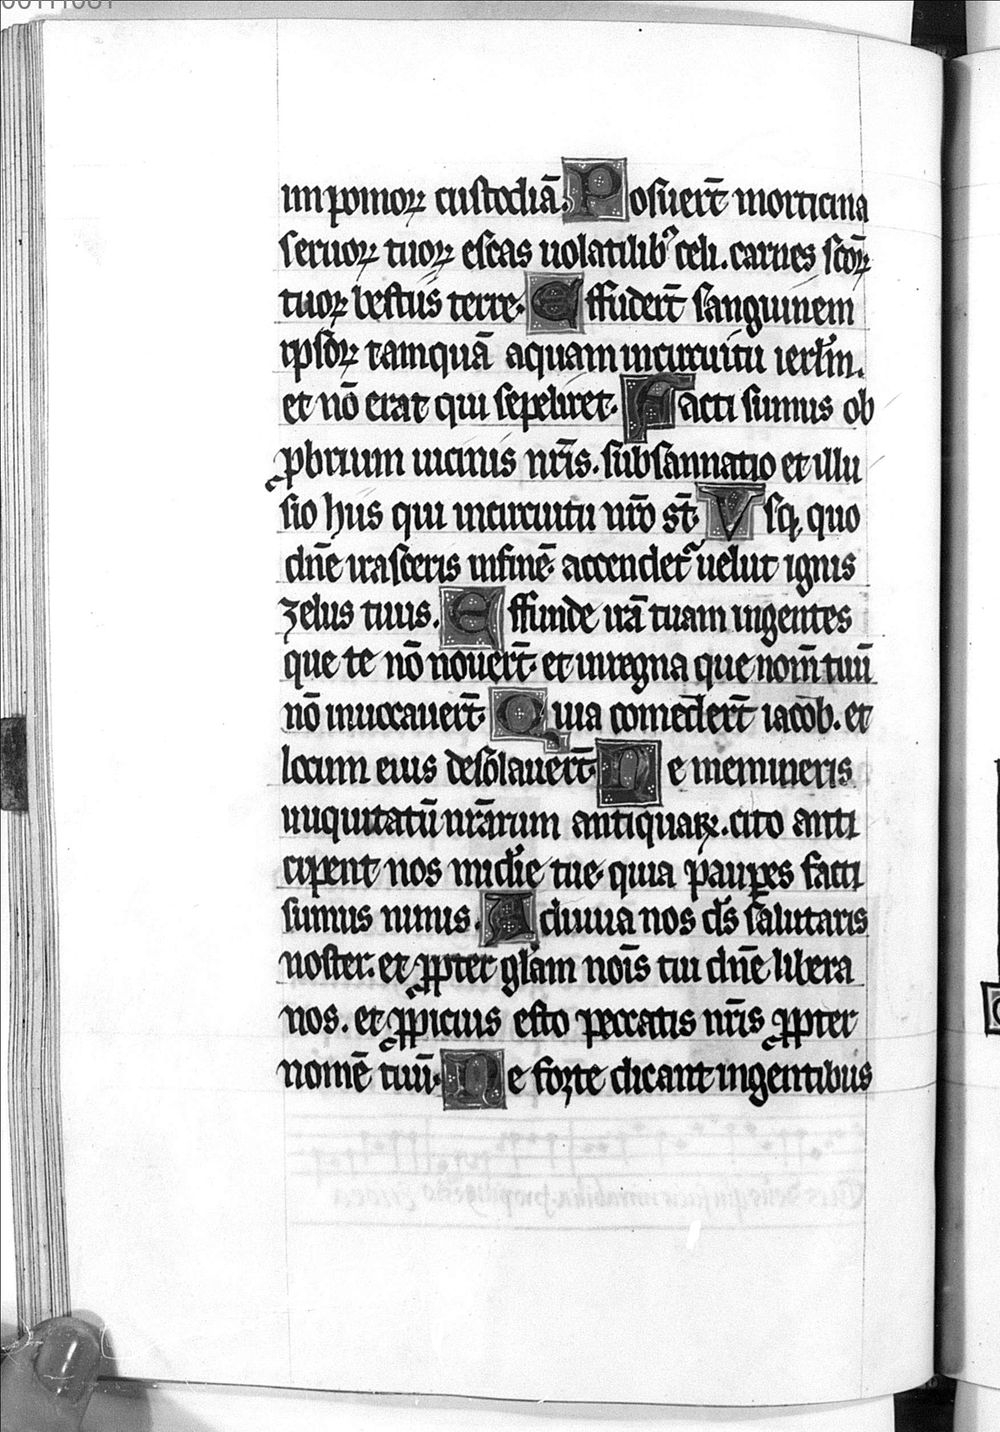 im pomoꝝ custodiā. Posuert̄ morticina
seruoꝝ tuoꝝ escas uolatilibꝰ celi. carnes sc̄oꝝ
tuoꝝ bestiis terre. Effudert̄ sanguinem
ip̄soꝝ tamquā aquam incircuitu ierl̄m.
et nō erat qui sepeliret. Facti sumus ob
ꝓbrium uicinis nr̄is. subsannatio et illu
sio hiis qui incircuitu nr̄o st̄. Vsq̨ quo
dn̄e irasceris infinē accendet᷑ uelut ignis
zelus tuus. Effunde irā tuam ingentes
que te nō nouert̄. et inregna que nom̄ tuū
nō inuocauert̄. Quia comedert̄ iacob. et
locum eius desolauert̄. Ne memineris
iniquitatū nr̄arum antiquaꝝ. cito anti
cipent nos mīdie tue. quia pauꝑes facti
sumus nimis. Adiuua nos ds̄ salutaris
noster. et ꝓpter gl̄am nōis tui dn̄e libera
nos. et ꝓpicius esto peccatis nr̄is ꝓpter
nomē tuū. Ne forte dicant ingentibus